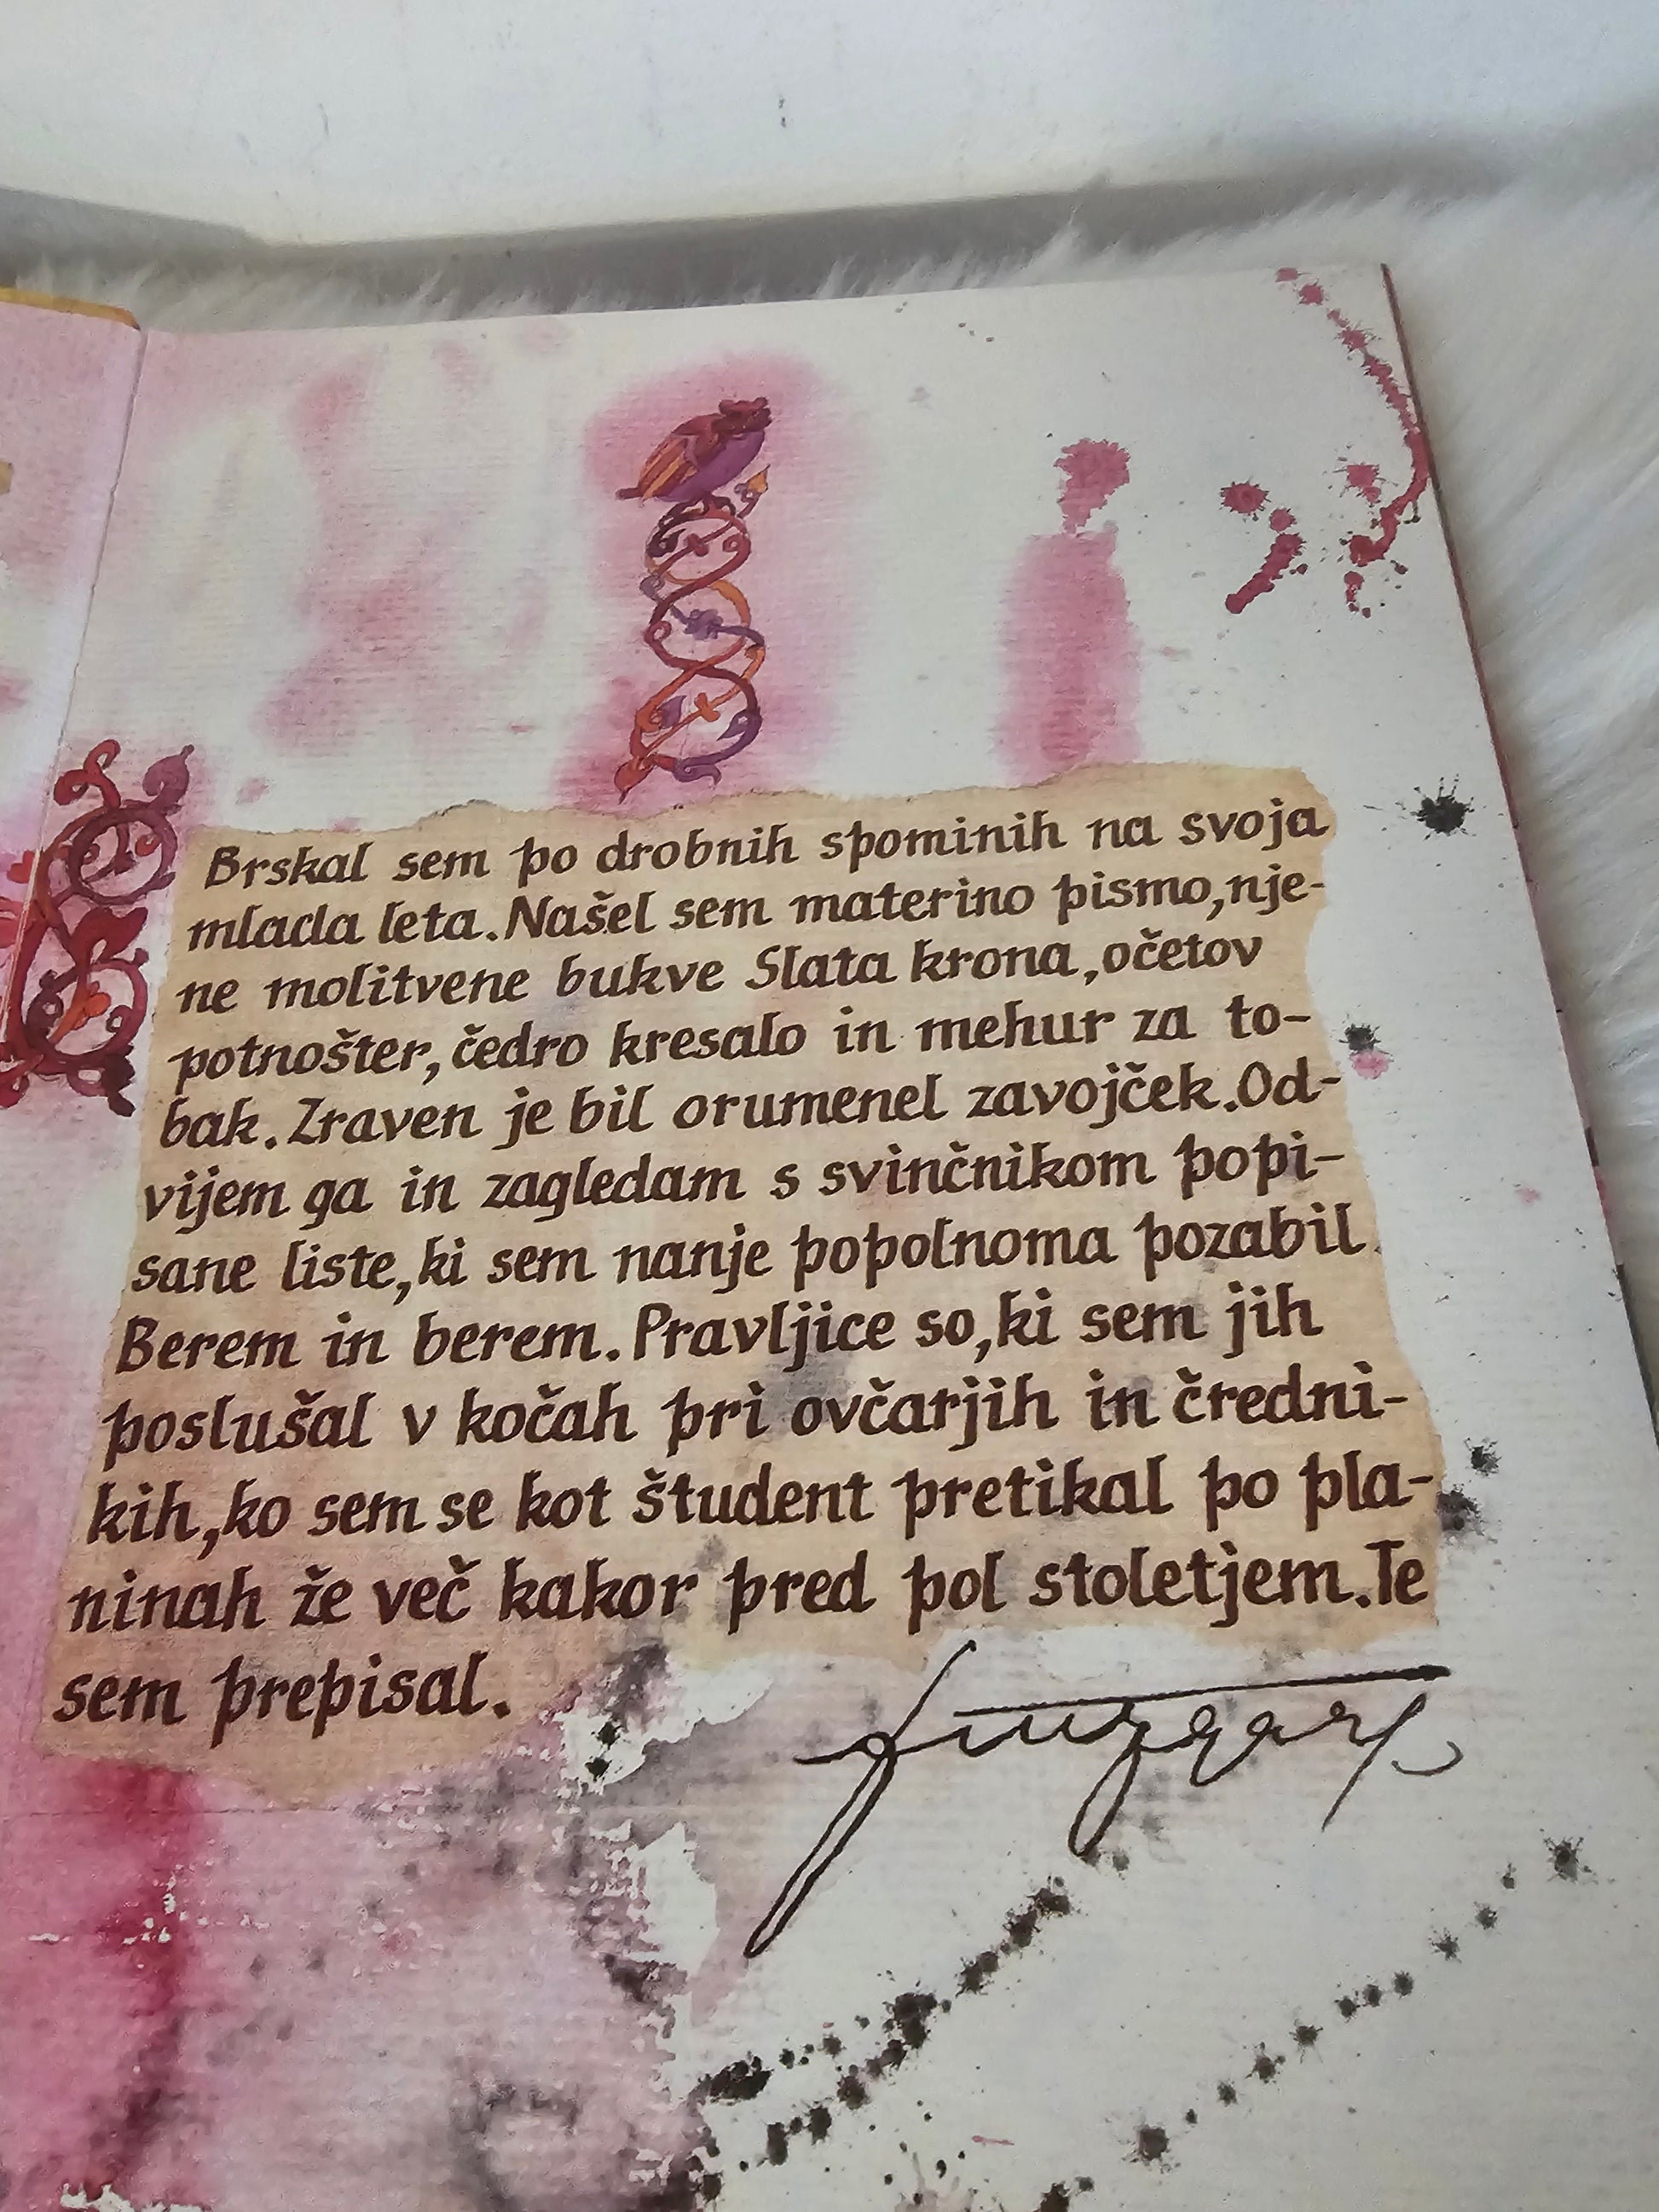 Brskal sem po drobnih spominih na svoja
mlada leta. Našel sem materino pismo, nje-
ne molitvene bukve Slata krona, očetov
potnošter, čedro kresalo in mehur za to-
bak. Zraven je bil orumenel zavojček. Od-
vijem ga in zagledam s svinčnikom popi-
sane liste, ki sem nanje popolnoma pozabil.
Berem in berem. Pravljice so, ki sem jih
poslušal v kočah pri ovčarjih in čredni-
kih, ko sem se kot študent pretikal po pla-
ninah že več kakor pred pol stoletjem. Te
sem prepisal.
Finžgar